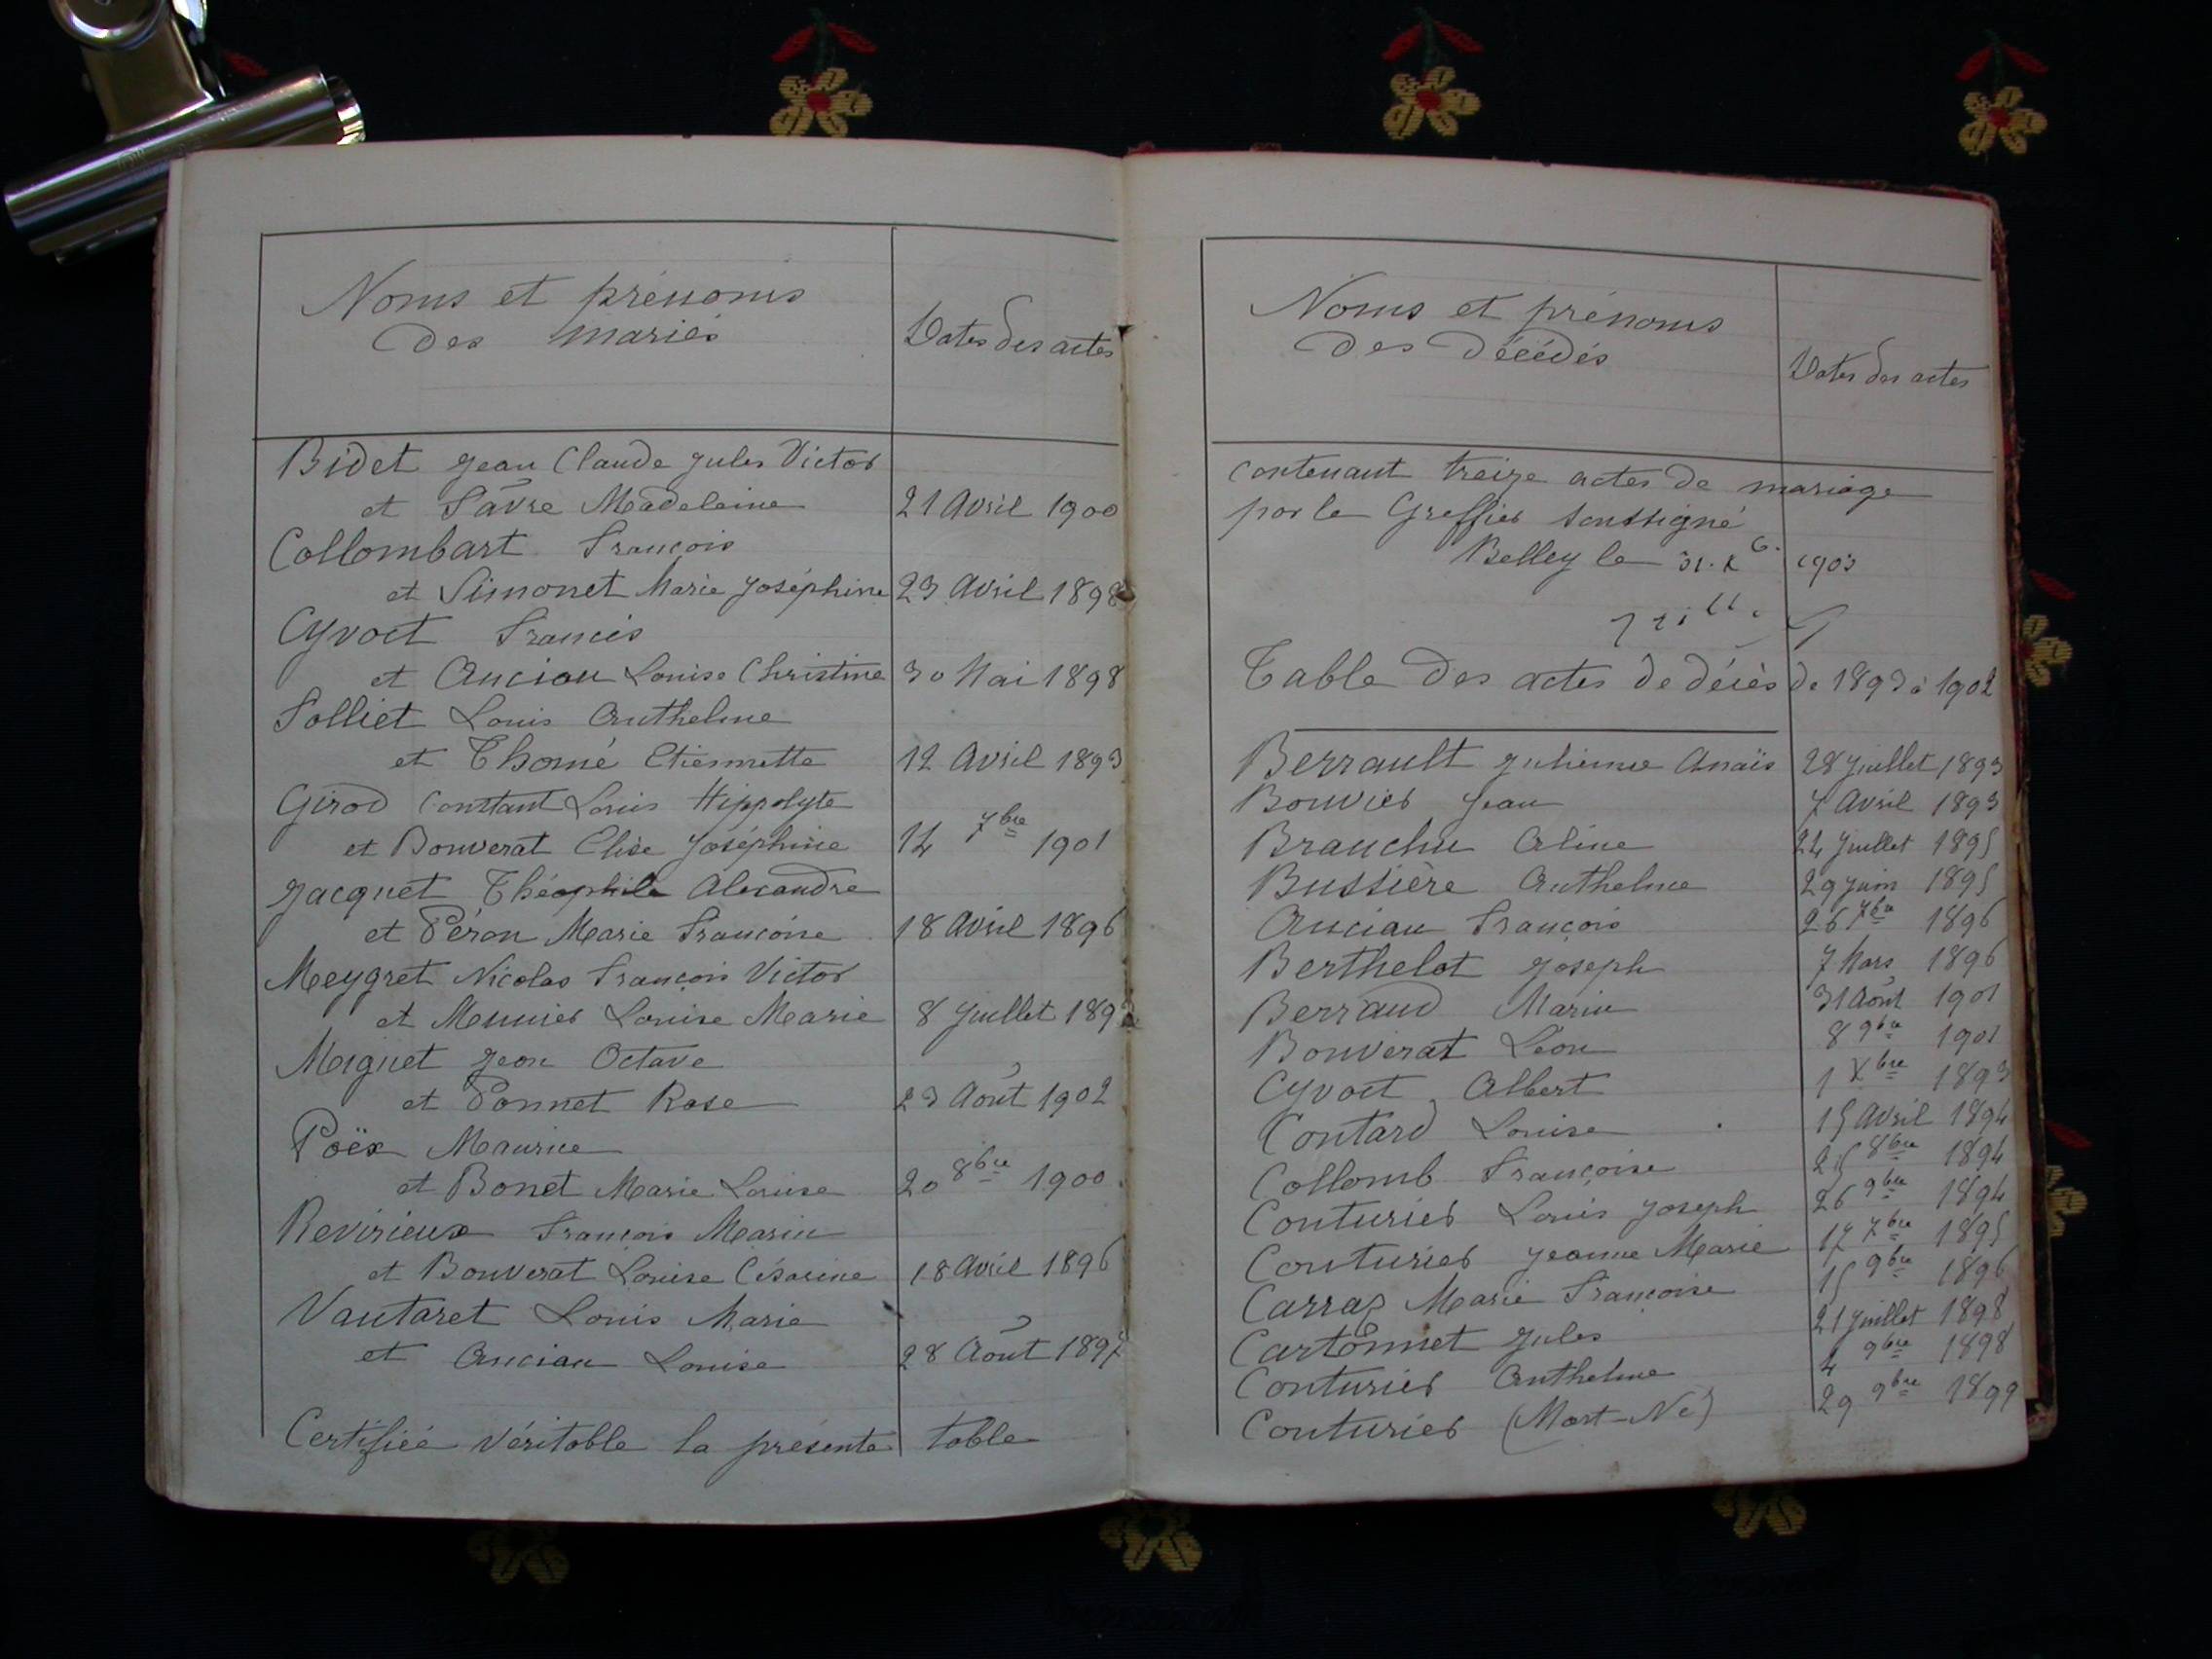 Noms et prénoms
des mariés
Dates des actes
Bidet Jean Claude Jules Victor
et Favre Madeleine 21 Avril 1900
Collombart François
et Simonet Marie Joséphine 23 Avril 1898
Cyvoct Francis
et Ancian Louise Christine 30 Mai 1898
Folliet Louis Anthelme
et Thomé Etiennette 12 Avril 1893
Girod Constant Louis Hippolyte
et Bonverat Elise Joséphine 14 7bre 1901
Jacquet Théophile Alexandre
et Péron Marie Françoise 18 Avril 1896
Meygret Nicolas François Victor
et Meunier Louise Marie 8 Juillet 1893
Moignet Jean Octave
et Ponnet Rose 23 Août 1902
Poëx Maurice
et Bonet Marie Louise 20 8bre 1900
Revirieux François Marin
et Bonverat Louise Césarine 18 Avril 1896
Vautaret Louis Marie
et Ancian Louise 28 Août 1897
Certifiée véritable la présente table
Noms et prénoms
des décédés
Dates des actes
contenant treize actes de mariage
par le Greffier soussigné
Belley le 31. X 6. 1903
Table des actes de décès de 1893 à 1902
Berrault Julienne Anaïs 28 Juillet 1893
Bouvier Jean 7 Avril 1893
Branchu Aline 24 Juillet 1895
Bussière Anthelme 29 Juin 1895
Ancian François 26 7bre 1896
Berthelot Joseph 7 Mars 1896
Berraud Marin 31 Août 1901
Bonverat Léon 8 9bre 1901
Cyvoct Albert 1 Xbre 1893
Contard Louise 15 Avril 1894
Collomb Françoise 25 8bre 1894
Couturier Louis Joseph 26 9bre 1894
Couturier Jeanne Marie 17 7bre 1895
Carraz Marie Françoise 15 9bre 1896
Cartonnet Jules 21 Juillet 1898
Couturier Anthelme 4 9bre 1898
Couturier (Mort-Né) 29 9bre 1899